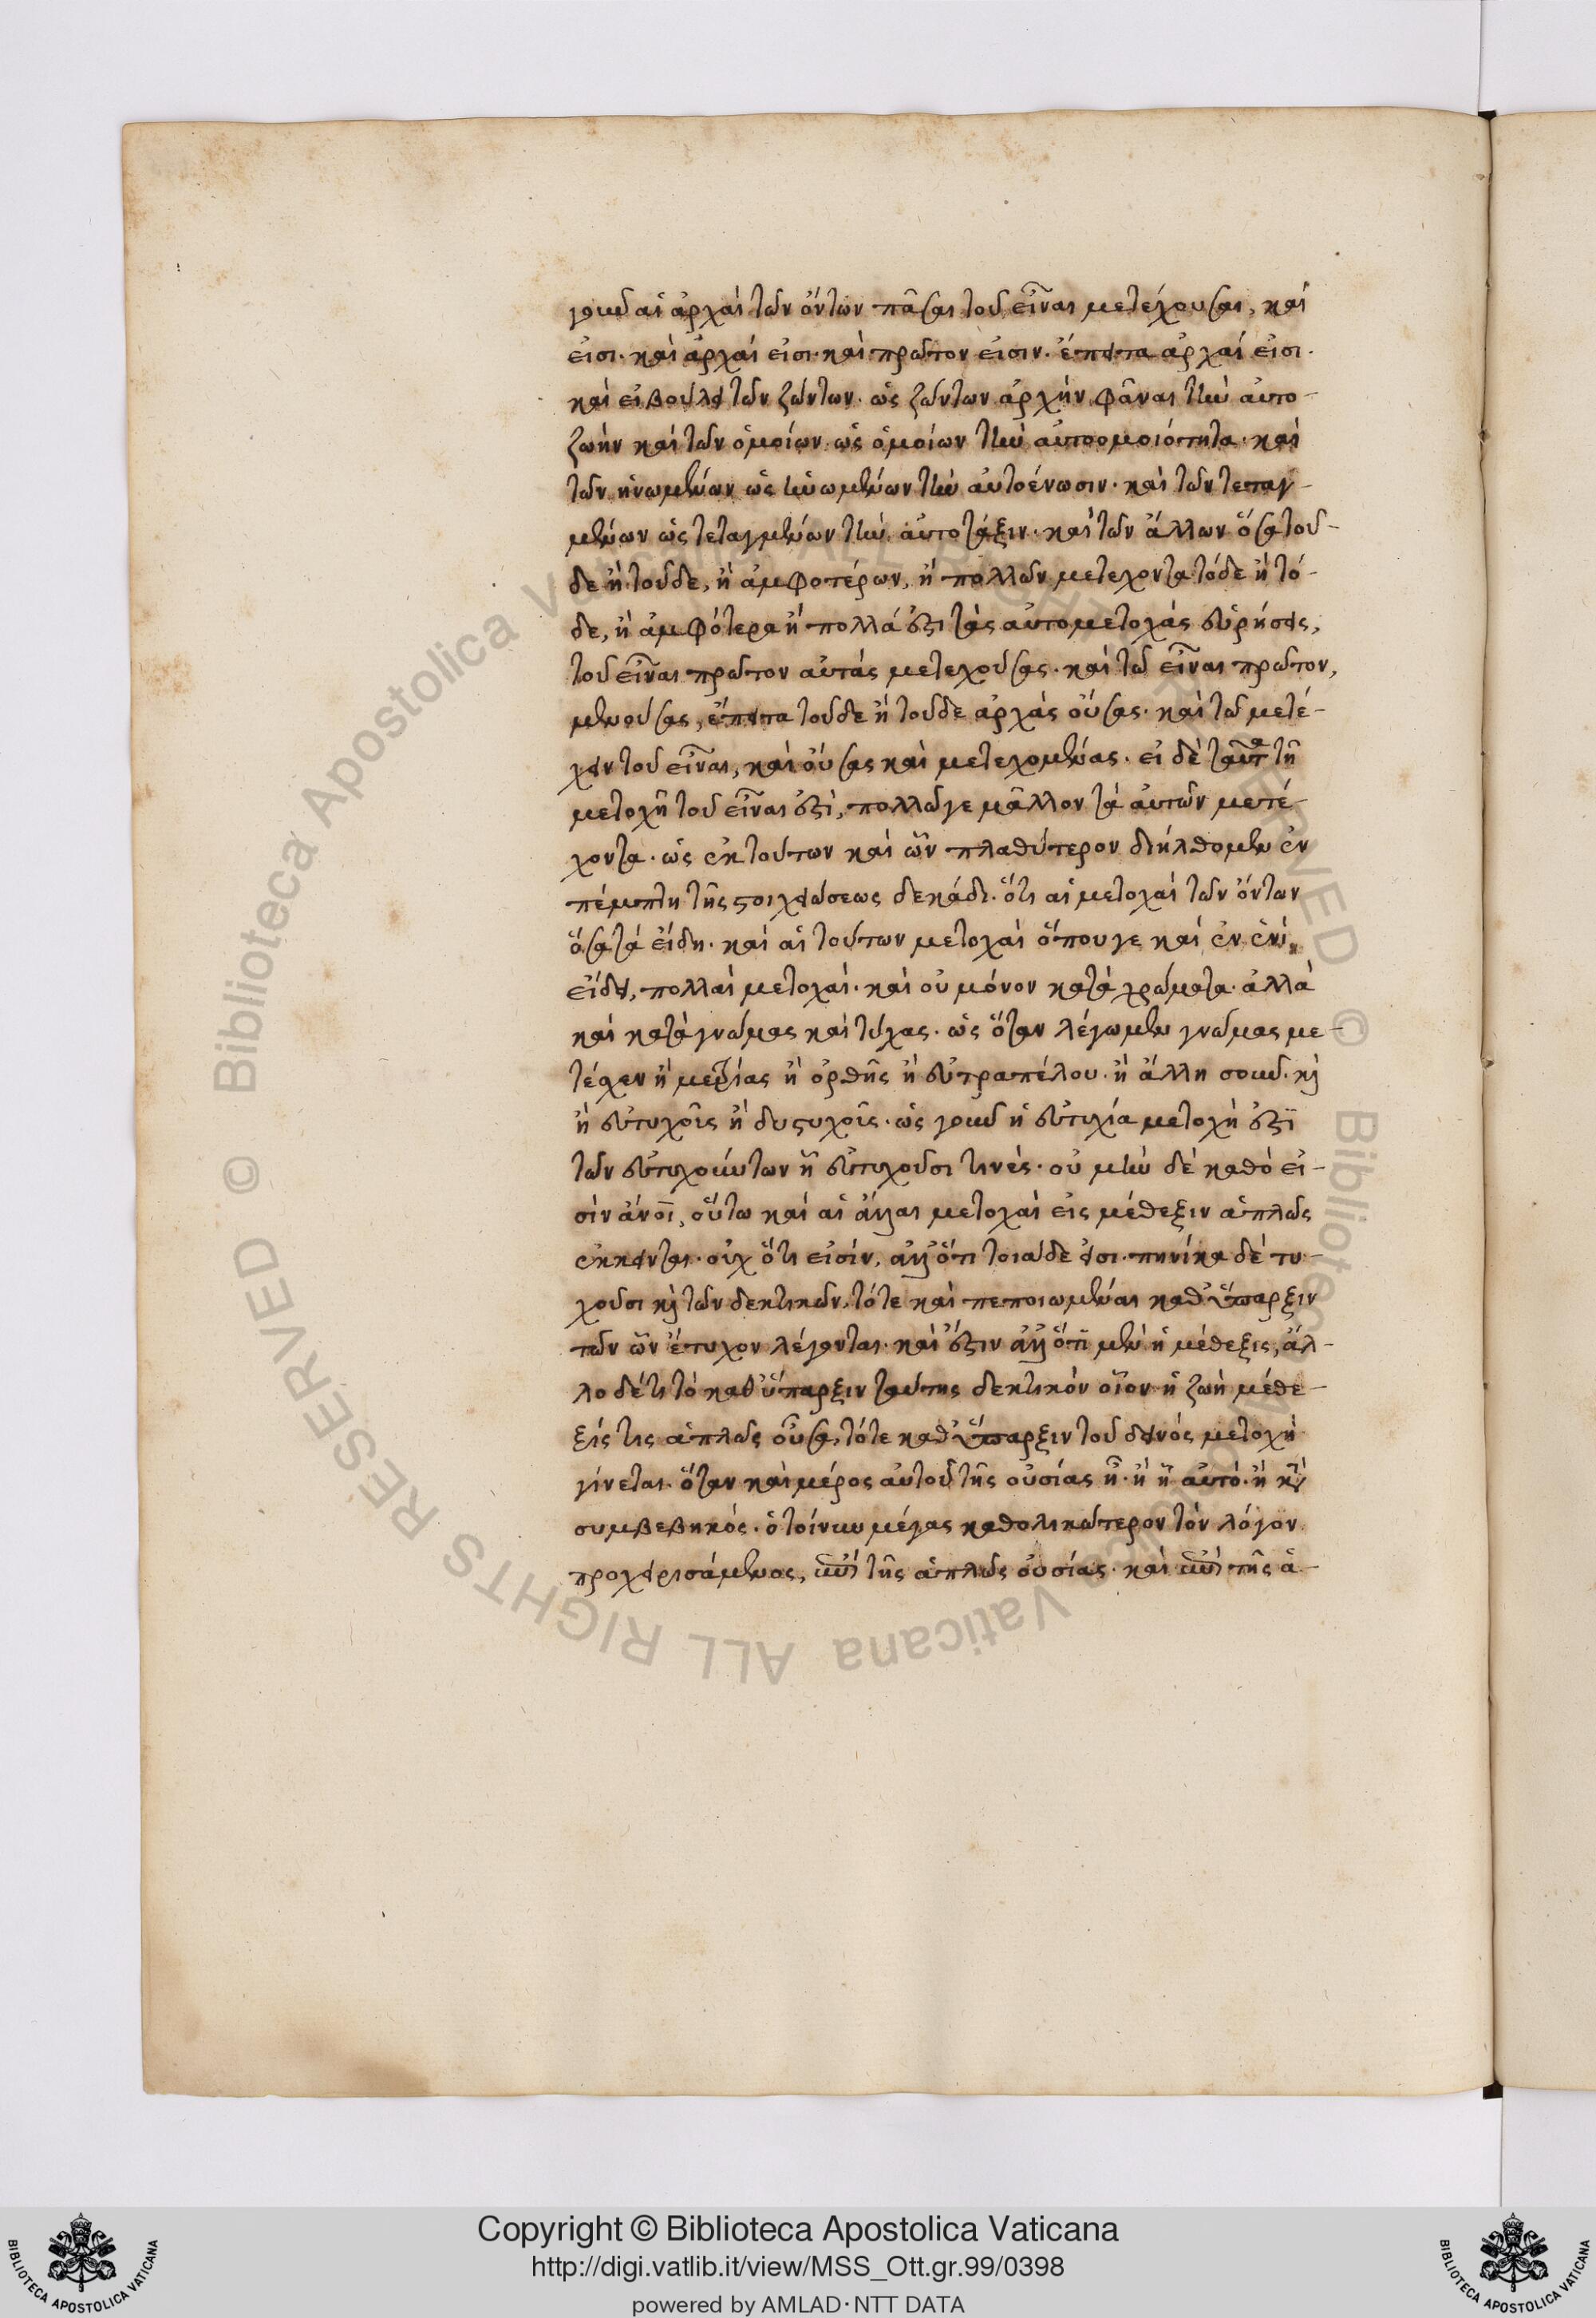 γοῦν αἱ ἀρχαὶ τῶν ὄντων πᾶσαι τοῦ εἶναι μετέχουσαι, καί
εἰσι· καὶ ἀρχαί εἰσι· καὶ πρῶτον εἰσιν· ἔπειτα ἀρχαί εἰσι·
καὶ εἰ βούλει τῶν ζώντων· ὡς ζώντων ἀρχὴν φᾶναι τὴν αὐτο-
ζωὴν καὶ τῶν ὁμοίων ὡς ὁμοίων τὴν αὐτοομοιότητα· καὶ
τῶν ἡνωμένων ὡς ἡνωμένων τὴν αὐτοένωσιν· καὶ τῶν τεταγ-
μένων ὡς τεταγμένων τὴν αὐτοτάξιν· καὶ τῶν ἄλλων ὅσα τοῦ-
δε ἢ τοῦδε, ἢ ἀμφοτέρων, ἢ πολλῶν μετεχοντα τόδε ἢ τό-
δε, ἢ ἀμφότερα ἢ πολλά ἐστι τὰς αὐτομετοχὰς εὑρήσεις,
τοῦ εἶναι πρῶτον αὐτὰς μετεχούσας· καὶ τῶ εἶναι πρῶτον,
μὲν οὔσας, ἔπειτα τοῦδε ἢ τοῦδε ἀρχὰς οὔσας· καὶ τῶ μετέ-
χειν τοῦ εἶναι, καὶ οὔσας καὶ μετεχομένας· εἰ δὲ ταῦτα τῆ
μετοχῆ τοῦ εἶναι ἐστὶ, πολλῶ γε μᾶλλον τὰ αὐτῶν μετέ-
χοντα· ὡς ἐκ τούτων καὶ ὧν πλατύτερον διήλθομεν ἐν
πέμπτη τῆς στοιχειώσεως δεκάδι· ὅτι αἱ μετοχαὶ τῶν ὄντων
ὅσα τὰ εἴδη· καὶ αἱ τούτων μετοχαὶ ὅπου γε καὶ ἐν ἑνὶ
εἴδει, πολλαὶ μετοχαί· καὶ οὐ μόνον κατὰ χρώματα· ἀλλὰ
καὶ κατὰ γνώμας καὶ τύχας· ὡς ὅταν λέγωμεν γνώμας με-
τέχειν ἢ μετρίας ἢ ὀρθῆς ἢ εὐτραπέλου· ἢ ἄλλη
ἢ εὐτυχοῖς ἢ δυστυχοῖς· ὡς γοῦν ἡ εὐτυχία μετοχὴ ἐστὶ
τῶν εὐτυχούντων ἧ εὐτυχοῦσι τινές· οὐ μὴν δὲ καθὸ εἰ-
σὶν ἄνοι, οὕτω καὶ αἱ ἄλλαι μετοχαὶ εἰς μέθεξιν ἁπλῶς
ἔκκεινται· οὐχ ὅτι εἰσίν, ἀλλ' ὅτι τοιαίδε εἰσι· πηνίκα δὲ τύ-
χουσι καὶ τῶν δεκτικῶν, τότε καὶ πεποιωμέναι καθ' ὕπαρξιν
τῶν ὧν ἔτυχον λέγονται· καὶ ἔστιν ἄλλο τι μὲν ἡ μέθεξις, ἄλ-
λο δέ τι τὸ καθ' ὕπαρξιν ταύτης δεκτικὸν οἷον ἡ ζωὴ μέθε-
ξίς τις ἁπλῶς οὖσα, τότε καθ' ὕπαρξιν τοῦ δεινὸς μετοχὴ
γίνεται· ὅταν καὶ μέρος αὐτοῦ τῆς οὐσίας ἦ· ἢ ἧ αὐτό· ἢ κατὰ
συμβεβηκός· ὁ τοίνυν μέγας καθολικώτερον τὸν λόγον
προχειρισάμενος, ἀντὶ τῆς ἁπλῶς οὐσίας· καὶ ἀντὶ τῆς ἁ-
Copyright © Biblioteca Apostolica Vaticana
http://digi.vatlib.it/view/MSS_Ott.gr.99/0398
powered by AMLAD·NTT DATA
BIBLIOTECA APOSTOLICA VATICANA
BIBLIOTECA APOSTOLICA VATICANA
© Biblioteca Apostolica Vaticana ALL RIGHTS RESERVED © Biblioteca Apostolica Vaticana ALL RIGHTS RESERVED